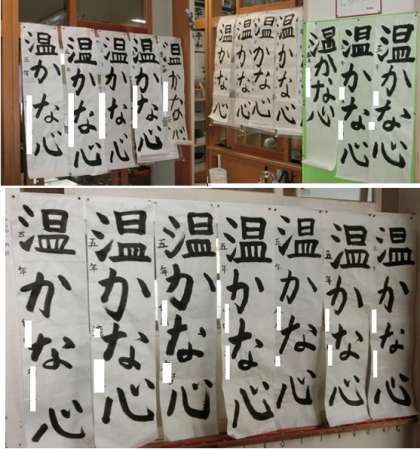 温かな心
五年
温かな心
温かな心
温かな心
温かな心
温かな心
温かな心
温かな心
温かな心
温かな心
温かな心
温かな心
温かな心
五年
温かな心
五年
温かな心
五年
温かな心
五年
温かな心
五年
温かな心
五年
温かな心